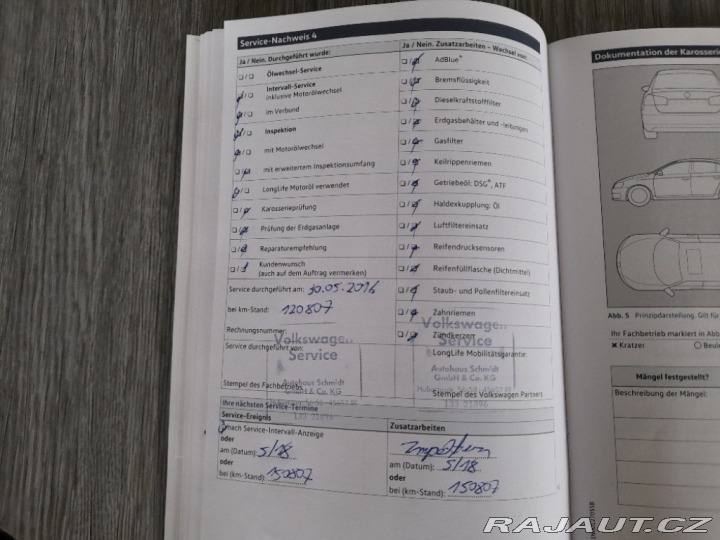 Service-Nachweis 4
Ja / Nein. Durchgeführt wurde:
Ölwechsel-Service
Intervall-Service
inklusive Motorölwechsel
im Verbund
Inspektion
mit Motorölwechsel
mit erweitertem Inspektionsumfang
LongLife Motoröl verwendet
Karosserieprüfung
Prüfung der Erdgasanlage
Reparaturempfehlung
Kundenwunsch
(auch auf dem Auftrag vermerken)
Service durchgeführt am: 30.05.2016
bei km-Stand: 120807
Rechnungsnummer:
Service durchgeführt von:
Stempel des Fachbetriebs
Ja / Nein. Zusatzarbeiten – Wechsel von:
AdBlue®
Bremsflüssigkeit
Dieselkraftstofffilter
Erdgasbehälter und -leitungen
Gasfilter
Keilrippenriemen
Getriebeöl: DSG®, ATF
Haldexkupplung: Öl
Luftfiltereinsatz
Reifendrucksensoren
Reifenfüllflasche (Dichtmittel)
Staub- und Pollenfiltereinsatz
Zahnriemen
Zündkerzen
LongLife Mobilitätsgarantie:
Stempel des Volkswagen Partners
Volkswagen
Service
Autohaus Schmidt
GmbH & Co. KG
Volkswagen
Service
Autohaus Schmidt
GmbH & Co. KG
Ihre nächsten Service-Termine
Service-Ereignis
nach Service-Intervall-Anzeige
oder
am (Datum): 5/18
oder
bei (km-Stand): 150807
Zusatzarbeiten
oder
am (Datum): 5/18
oder
bei (km-Stand): 150807
Dokumentation der Karosserie
Abb. 5 Prinzipdarstellung. Gilt für
Ihr Fachbetrieb markiert in Abb.
Kratzer
Beule
Mängel festgestellt?
Beschreibung der Mängel:
RAJAUT.CZ